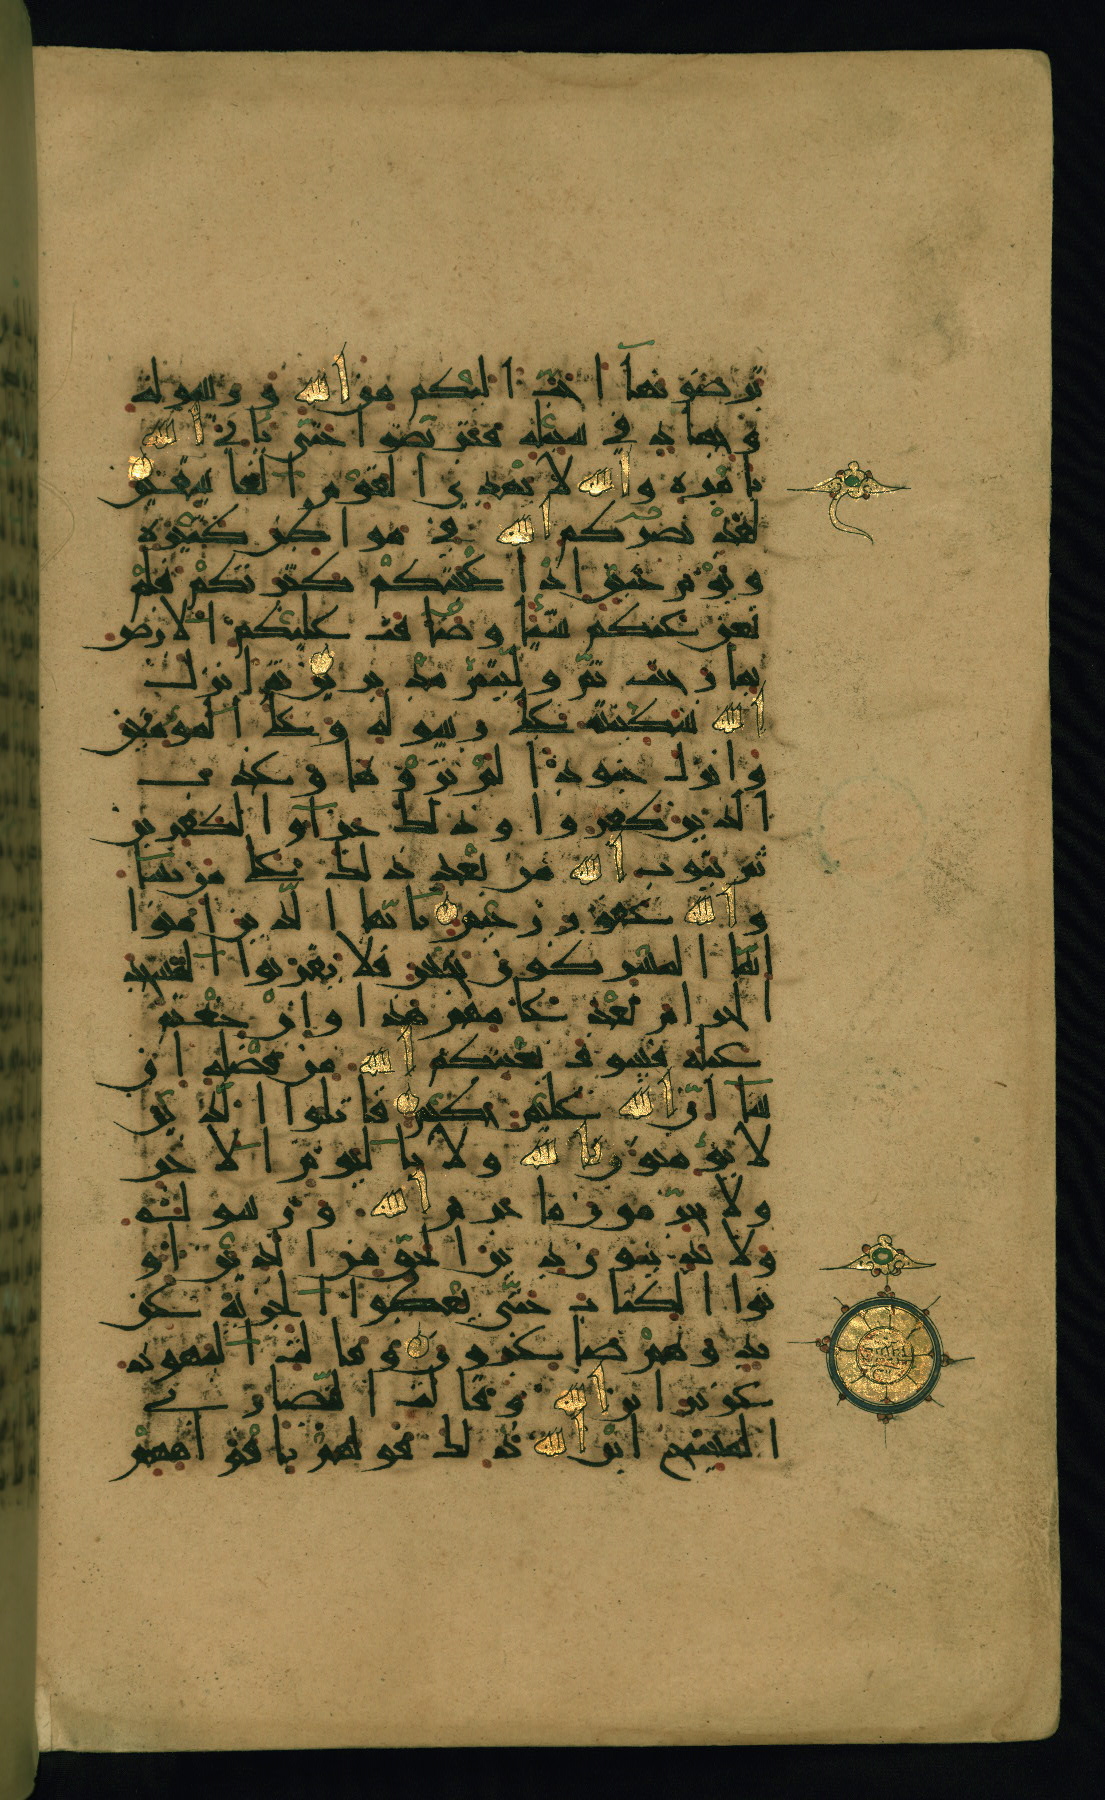 ترضونها احب اليكم من الله ورسوله
وجهاد في سبيله فتربصوا حتى ياتي الله
بامره والله لا يهدي القوم الفاسقين
لقد نصركم الله في مواطن كثيرة
ويوم حنين اذ اعجبتكم كثرتكم فلم
تغن عنكم شيئا وضاقت عليكم الارض
بما رحبت ثم وليتم مدبرين ثم انزل
الله سكينته على رسوله وعلى المومنين
وانزل جنودا لم تروها وعذب
الذين كفروا وذلك جزآء الكفرين
ثم يتوب الله من بعد ذلك على من يشآء
والله غفور رحيم يآيها الذين امنوا
انما المشركون نجس فلا يقربوا المسجد
الحرام بعد عامهم هذا وان خفتم
عيلة فسوف يغنيكم الله من فضله ان
شآء ان الله عليم حكيم قاتلوا الذين
لا يومنون بالله ولا باليوم الاخر
ولا يحرمون ما حرم الله ورسوله
ولا يدينون دين الحق من الذين او
توا الكتاب حتى يعطوا الجزية عن
يد وهم صاغرون وقالت اليهود
عزير ابن الله وقالت النصارى
المسيح ابن الله ذلك قولهم بافواههم